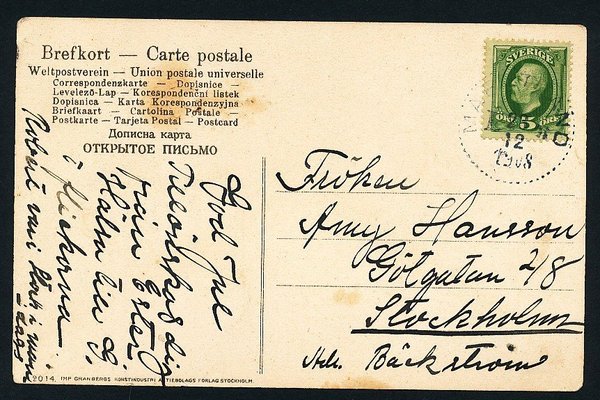 Brefkort — Carte postale
Weltpostverein — Union postale universelle
Correspondenzkarte — Dopisnice —
Levelező-Lap — Korespondenční listek
Dopisnica — Karta Korespondenzyjna
Briefkaart — Cartolina Postale —
Postkarte — Tarjeta Postal — Postcard
Дописна карта
ОТКРЫТОЕ ПИСЬМО
SVERIGE
ÖRE 5 ÖRE
12
1908
God Jul
Tillönskas dig
från Ester
Hälsa
flickorna
Robert
Fröken
Amy Hansson
Götgatan 2/8
Stockholm
Adr. Bäckström
2014. IMP GRANBERGS KONSTINDUSTRI AKTIEBOLAGS FÖRLAG STOCKHOLM.